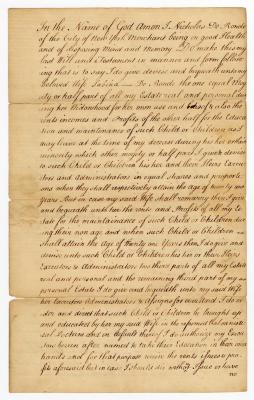 In the Name of God Amen I Nicholas De Ronde
of the City of New York Merchant being in good Health
and of disposing Mind and Memory Do make this my
last Will and Testament in manner and form follow
ing that is to say I do give devise and bequeath unto my
beloved Wife De Ronde the one equal Moie
ty or half part of all my Estate real and personal du
ring her Widowhood for her own use and also the
rents incomes and Profits of the other half for the Educa
tion and maintenance of such Child or Children as I
may leave at the time of my decease during his her or their
minority which other moiety or half part I give & devise
to such Child or Children his her and their Heirs Execu
tors and Administrators in equal Shares and proporti
ons when they shall respectively attain the age of twenty one
Years But in case my said Wife shall remarry then I give
and bequeath unto her the rents and Profits of all my Es
tate for the maintainance of such Child or Children du
ring their non age and when such Child or Children
shall attain the Age of Twenty one Years then I do give and
devise unto such Child or Children his her or their Heirs
Executors & Administrators two thirds parts of all my Estate
real and personal and the remaining third part of my
personal Estate I do give and bequeath unto my said Wife
her Executors Administrators & Assigns for ever And I do or
der and direct that such Child or Children be brought up
and educated by my said Wife in the reformed Calvinisti
cal Doctrine and in default thereof I do authorize my Execu
tors herein after named to take their Education in their own
hands and for that purpose receive the rents Issues & pro
fits aforesaid but in case I should die without Issue or have
no